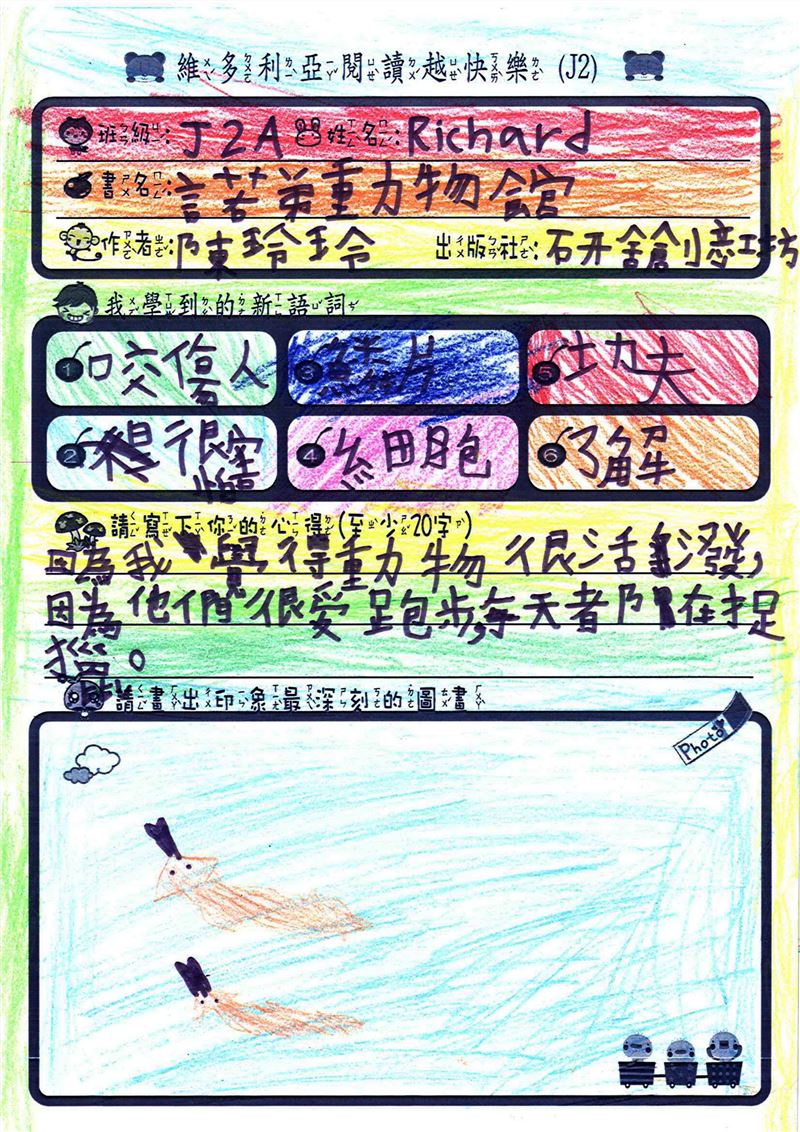 維多利亞閱讀越快樂 (J2)
班級: J2A 姓名: Richard
書名: 諾弟動物館
作者: 陳玲玲 出版社: 研舍創意工坊
我學到的新語詞
1 咬傷人 3 片 5 功夫
2 很 4 細胞 6 了解
請寫下你的心得(至少20字)
因為我覺得動物很活潑,
因為他們很愛跑步,每天都在捉
。
請畫出印象最深刻的圖畫
Photo